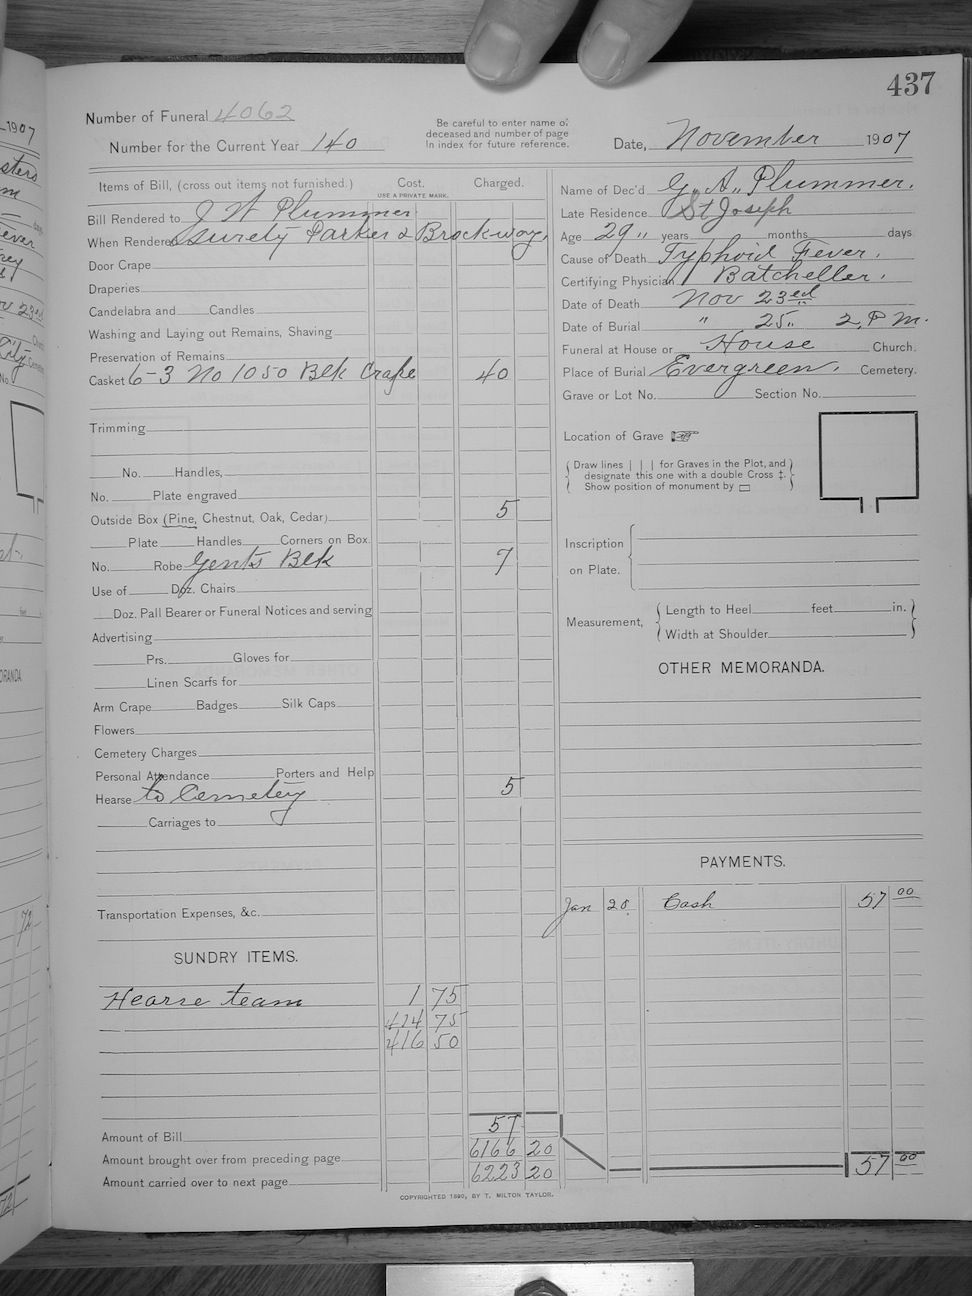 437
Number of Funeral 4062
Number for the Current Year 140
Be careful to enter name of
deceased and number of page
in index for future reference.
Date, November 1907
Items of Bill, (cross out items not furnished.) Cost. Charged.
USE A PRIVATE MARK.
Bill Rendered to J W Plummer
When Rendered Surety Parker & Brockway,
Door Crape
Draperies
Candelabra and Candles
Washing and Laying out Remains, Shaving
Preservation of Remains
Casket 6-3 No 1050 Blk Crape 40
Trimming
No. Handles,
No. Plate engraved
Outside Box (Pine, Chestnut, Oak, Cedar) 5
Plate Handles Corners on Box.
No. Robe Gents Blk 7
Use of Doz. Chairs
Doz. Pall Bearer or Funeral Notices and serving
Advertising
Prs. Gloves for
Linen Scarfs for
Arm Crape Badges Silk Caps
Flowers
Cemetery Charges
Personal Attendance Porters and Help
Hearse to Cemetery 5
Carriages to
Transportation Expenses, &c.
SUNDRY ITEMS.
Hearse team 1 75
414 75
416 50
Amount of Bill 57
Amount brought over from preceding page 6166 20
Amount carried over to next page 6223 20
Name of Dec'd G. A. Plummer.
Late Residence St Joseph
Age 29 years months days
Cause of Death Typhoid Fever.
Certifying Physician Batcheller.
Date of Death Nov 23rd
Date of Burial " 25 2, P M.
Funeral at House or House Church.
Place of Burial Evergreen. Cemetery.
Grave or Lot No. Section No.
Location of Grave
Draw lines | | | for Graves in the Plot, and
designate this one with a double Cross ‡.
Show position of monument by
Inscription
on Plate.
Measurement, Length to Heel feet in.
Width at Shoulder
OTHER MEMORANDA.
PAYMENTS.
Jan 28. Cash 57 00
57 00
COPYRIGHTED 1890, BY T. MILTON TAYLOR.